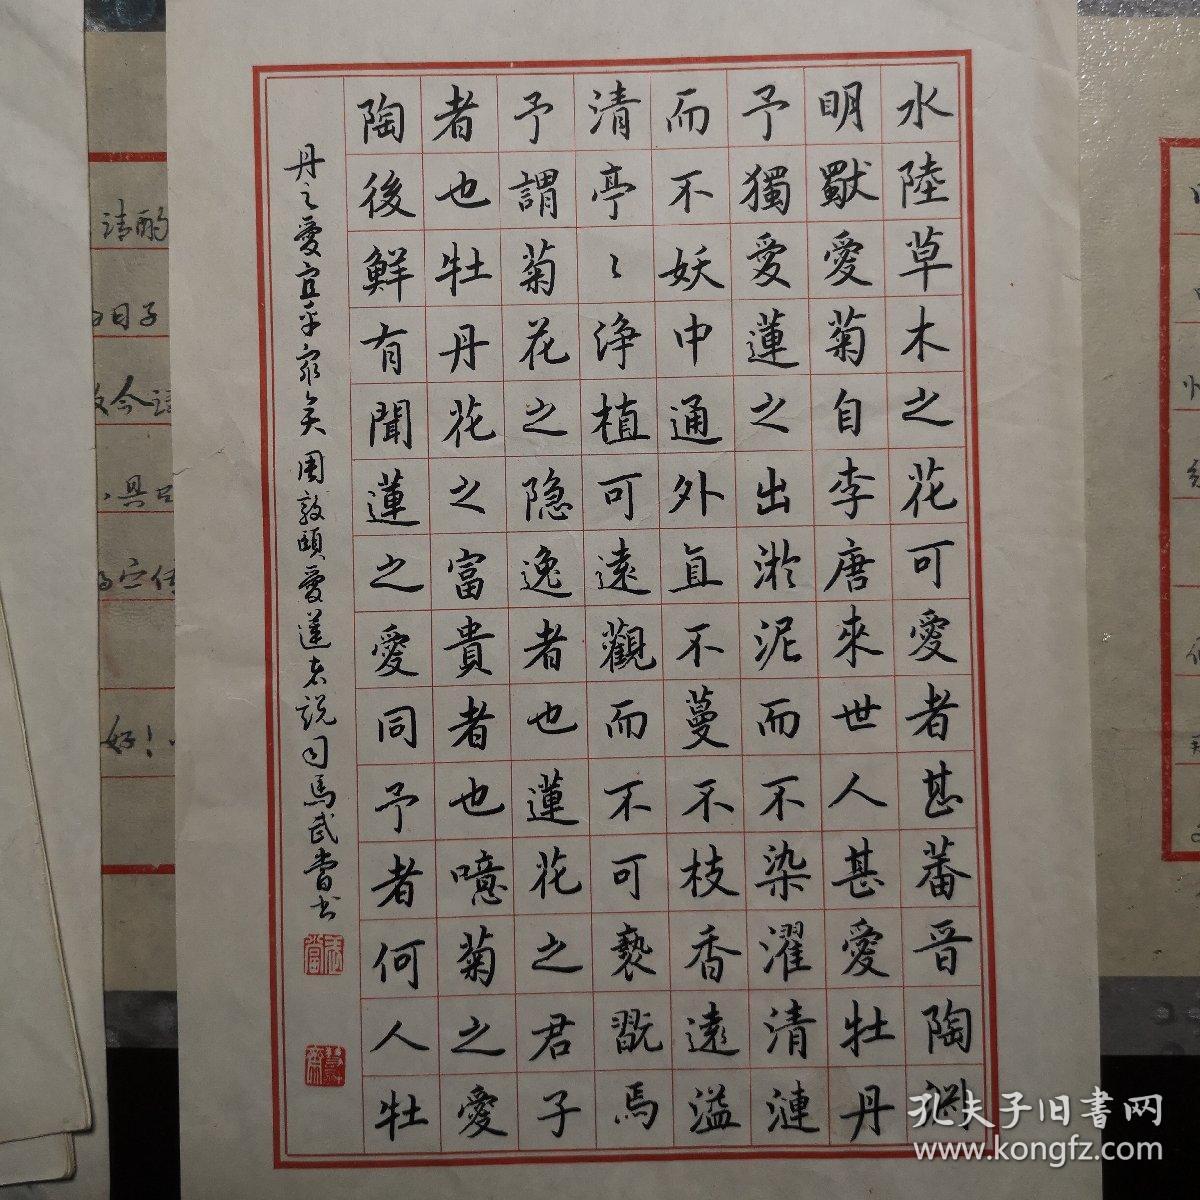 水陸草木之花可愛者甚蕃晋陶淵
明獸愛菊自李唐來世人甚愛牡丹
予獨愛蓮之出淤泥而不染濯清漣
而不妖中通外直不蔓不枝香遠溢
清亭〻浄植可遠觀而不可褻翫焉
予謂菊花之隐逸者也蓮花之君子
者也牡丹花之富貴者也噫菊之愛
陶後鮮有聞蓮之愛同予者何人牡
丹之愛宜乎眾矣 周敦頤愛蓮説 司馬武當书
武當
请酌
日子
今
具
好！
孔夫子旧書网
www.kongfz.com